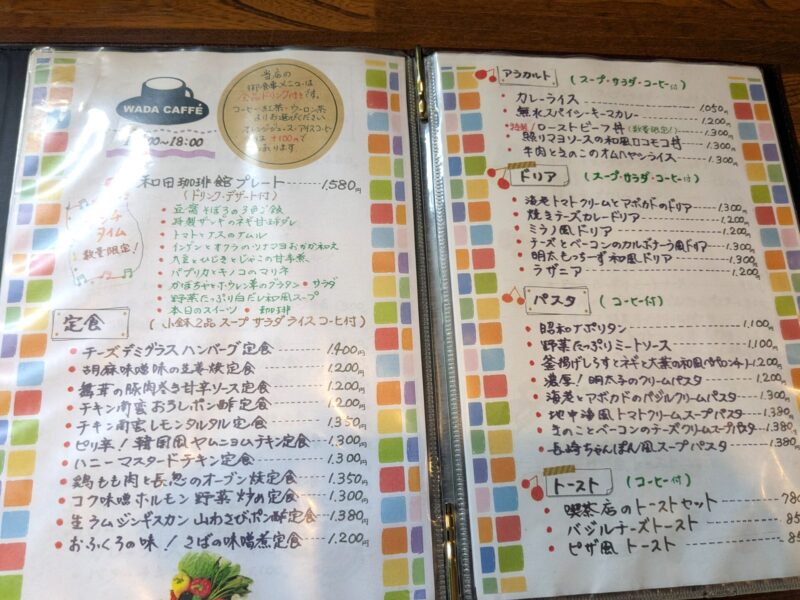 WADA CAFFÉ
00〜18:00
当店の
御食事メニューは
全品ドリンク付です。
コーヒー・紅茶・ウーロン茶
よりお選びください
オレンジジュース・アイスコーヒー
は+100円で
承ります
和田珈琲館プレート 1,580円
(ドリンク・デザート付)
タイム
数量限定!
・豆腐そぼろの3色ご飯
・特製ザンギのネギ甘ダレ
・トマトとナスのナムル
・インゲンとオクラのツナマヨおかか和え
・大豆とひじきとじゃこの甘辛煮
・パプリカとキノコのマリネ
・かぼちゃとホウレン草のグラタン ・サラダ
・野菜たっぷり白だし和風スープ
・本日のスイーツ ・珈琲
定食
(小鉢2品 スープ サラダ ライス コーヒー付)
・チーズデミグラスハンバーグ定食 1,400円
・胡麻味噌味の生姜焼定食 1,200円
・舞茸の豚肉巻き甘辛ソース定食 1,200円
・チキン南蛮おろしポン酢定食 1,200円
・チキン南蛮レモンタルタル定食 1,350円
・ピリ辛!韓国風ヤムニョムチキン定食 1,300円
・ハニーマスタードチキン定食 1,300円
・鶏もも肉と長葱のオーブン焼定食 1,350円
・コク味噌ホルモン野菜炒め定食 1,300円
・生ラムジンギスカン山わさびポン酢定食 1,380円
・おふくろの味!さばの味噌煮定食 1,200円
アラカルト
(スープ・サラダ・コーヒー付)
・カレーライス 1,050円
・無水スパイシーキーマカレー 1,200円
・特製!ローストビーフ丼(数量限定!) 1,300円
・照りマヨソースの和風ロコモコ丼 1,300円
・牛肉ときのこのオムハヤシライス 1,300円
ドリア
(スープ・サラダ・コーヒー付)
・海老トマトクリームとアボカドのドリア 1,300円
・焼きチーズカレードリア 1,200円
・ミラノ風ドリア 1,200円
・チーズとベーコンのカルボナーラ風ドリア 1,300円
・明太もっちーず和風ドリア 1,300円
・ラザニア 1,200円
パスタ
(コーヒー付)
・昭和ナポリタン 1,100円
・野菜たっぷりミートソース 1,100円
・釜揚げしらすとネギと大葉の和風ペペロンチーノ 1,200円
・濃厚!明太子のクリームパスタ 1,200円
・海老とアボカドのバジルクリームパスタ 1,300円
・地中海風トマトクリームスープパスタ 1,380円
・きのことベーコンのチーズクリームスープパスタ 1,380円
・長崎ちゃんぽん風スープパスタ 1,380
トースト
(コーヒー付)
・喫茶店のトーストセット 780
・バジルチーズトースト 85
・ピザ風トースト 85